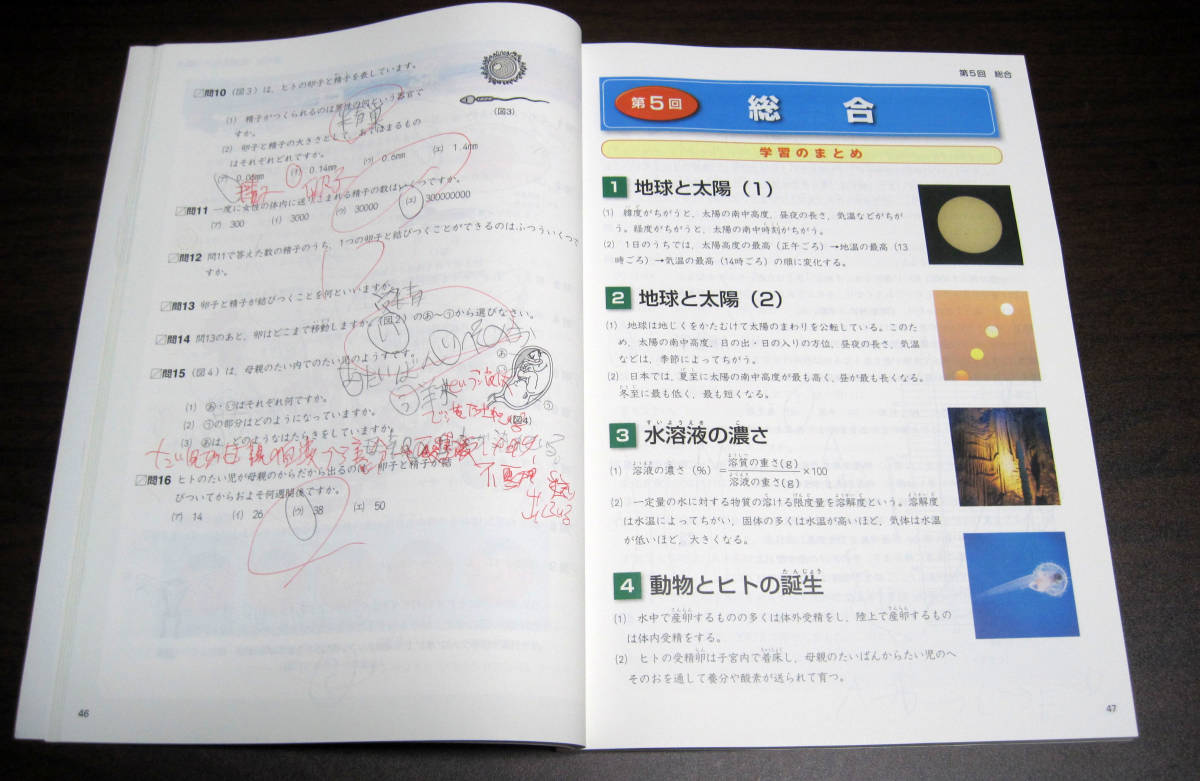 問10 (図3) は，ヒトの卵子と精子を表しています。
(図3)
(1) 精子がつくられるのは男性の何という器官で
すか。
(2) 卵子と精子の大きさとして，あてはまるもの
はそれぞれどれですか。
(ア) 0.06mm (イ) 0.14mm (ウ) 0.6mm (エ) 1.4mm
精子 卵子
問11 一度に女性の体内に送りこまれる精子の数はいくつですか。
(ア) 300 (イ) 3000 (ウ) 30000 (エ) 300000000
問12 問11で答えた数の精子のうち，1つの卵子と結びつくことができるのはふつういくつで
すか。
問13 卵子と精子が結びつくことを何といいますか。
問14 問13のあと，卵はどこまで移動しますか。(図2) のあ〜うから選びなさい。
問15 (図4) は，母親のたい内でのたい児のようすです。
(1) あ・いはそれぞれ何ですか。
(2) うの部分はどのようになっていますか。
(3) あは，どのようなはたらきをしていますか。
(図4)
問16 ヒトのたい児が母親のからだから出るのは，卵子と精子が結
びついてからおよそ何週間後ですか。
(ア) 14 (イ) 26 (ウ) 38 (エ) 50
46
第5回 総合
第5回 総合
学習のまとめ
1 地球と太陽 (1)
(1) 緯度がちがうと，太陽の南中高度，昼夜の長さ，気温などがちが
う。経度がちがうと，太陽の南中時刻がちがう。
(2) 1日のうちでは，太陽高度の最高 (正午ごろ) →地温の最高 (13
時ごろ) →気温の最高 (14時ごろ) の順に変化する。
2 地球と太陽 (2)
(1) 地球は地じくをかたむけて太陽のまわりを公転している。このた
め，太陽の南中高度，日の出・日の入りの方位，昼夜の長さ，気温
などは，季節によってちがう。
(2) 日本では，夏至に太陽の南中高度が最も高く，昼が最も長くなる。
冬至に最も低く，最も短くなる。
3 水溶液の濃さ
(1) 溶液の濃さ (%) = 溶質の重さ(g) / 溶液の重さ(g) ×100
(2) 一定量の水に対する物質の溶ける限度量を溶解度という。溶解度
は水温によってちがい，固体の多くは水温が高いほど，気体は水温
が低いほど，大きくなる。
4 動物とヒトの誕生
(1) 水中で産卵するものの多くは体外受精をし，陸上で産卵するもの
は体内受精をする。
(2) ヒトの受精卵は子宮内で着床し，母親のたいばんからたい児のへ
そのおを通して養分や酸素が送られて育つ。
47